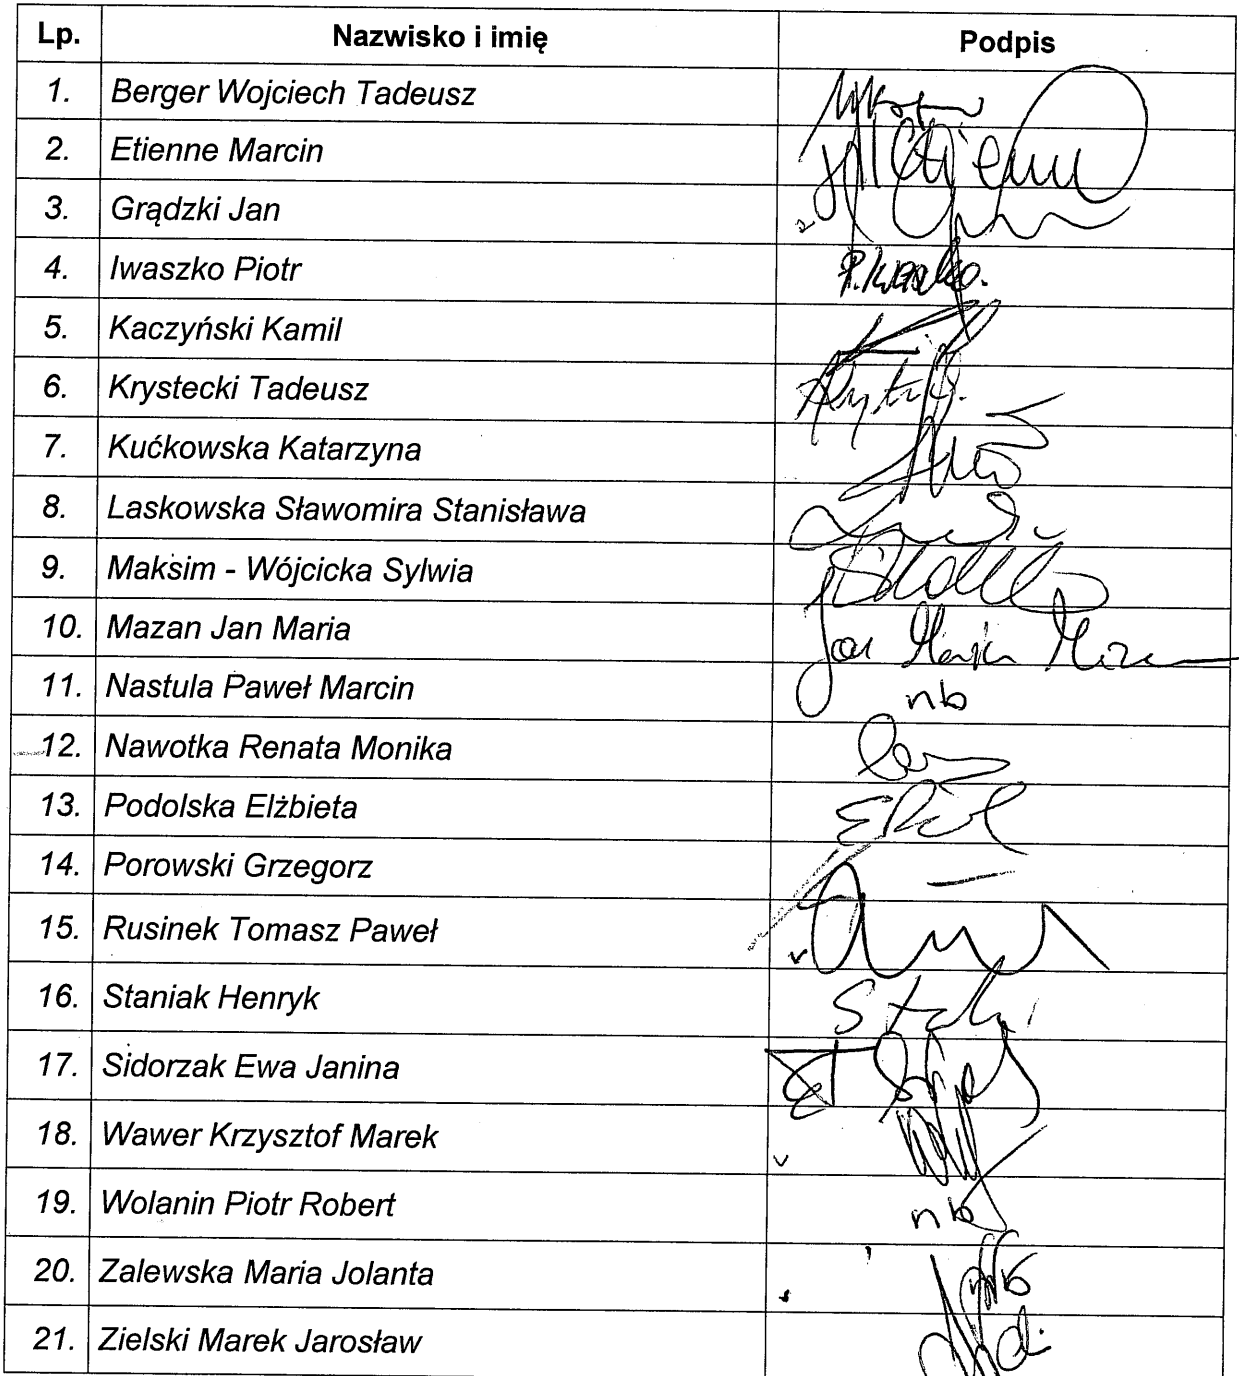 Lp. Nazwisko i imię Podpis
1. Berger Wojciech Tadeusz
2. Etienne Marcin
3. Grądzki Jan
4. Iwaszko Piotr P. Iwaszko.
5. Kaczyński Kamil
6. Krystecki Tadeusz
7. Kućkowska Katarzyna
8. Laskowska Sławomira Stanisława
9. Maksim - Wójcicka Sylwia
10. Mazan Jan Maria Jan Maria Mazan
11. Nastula Paweł Marcin nb
12. Nawotka Renata Monika
13. Podolska Elżbieta
14. Porowski Grzegorz —
15. Rusinek Tomasz Paweł
16. Staniak Henryk
17. Sidorzak Ewa Janina
18. Wawer Krzysztof Marek
19. Wolanin Piotr Robert nb
20. Zalewska Maria Jolanta nb
21. Zielski Marek Jarosław